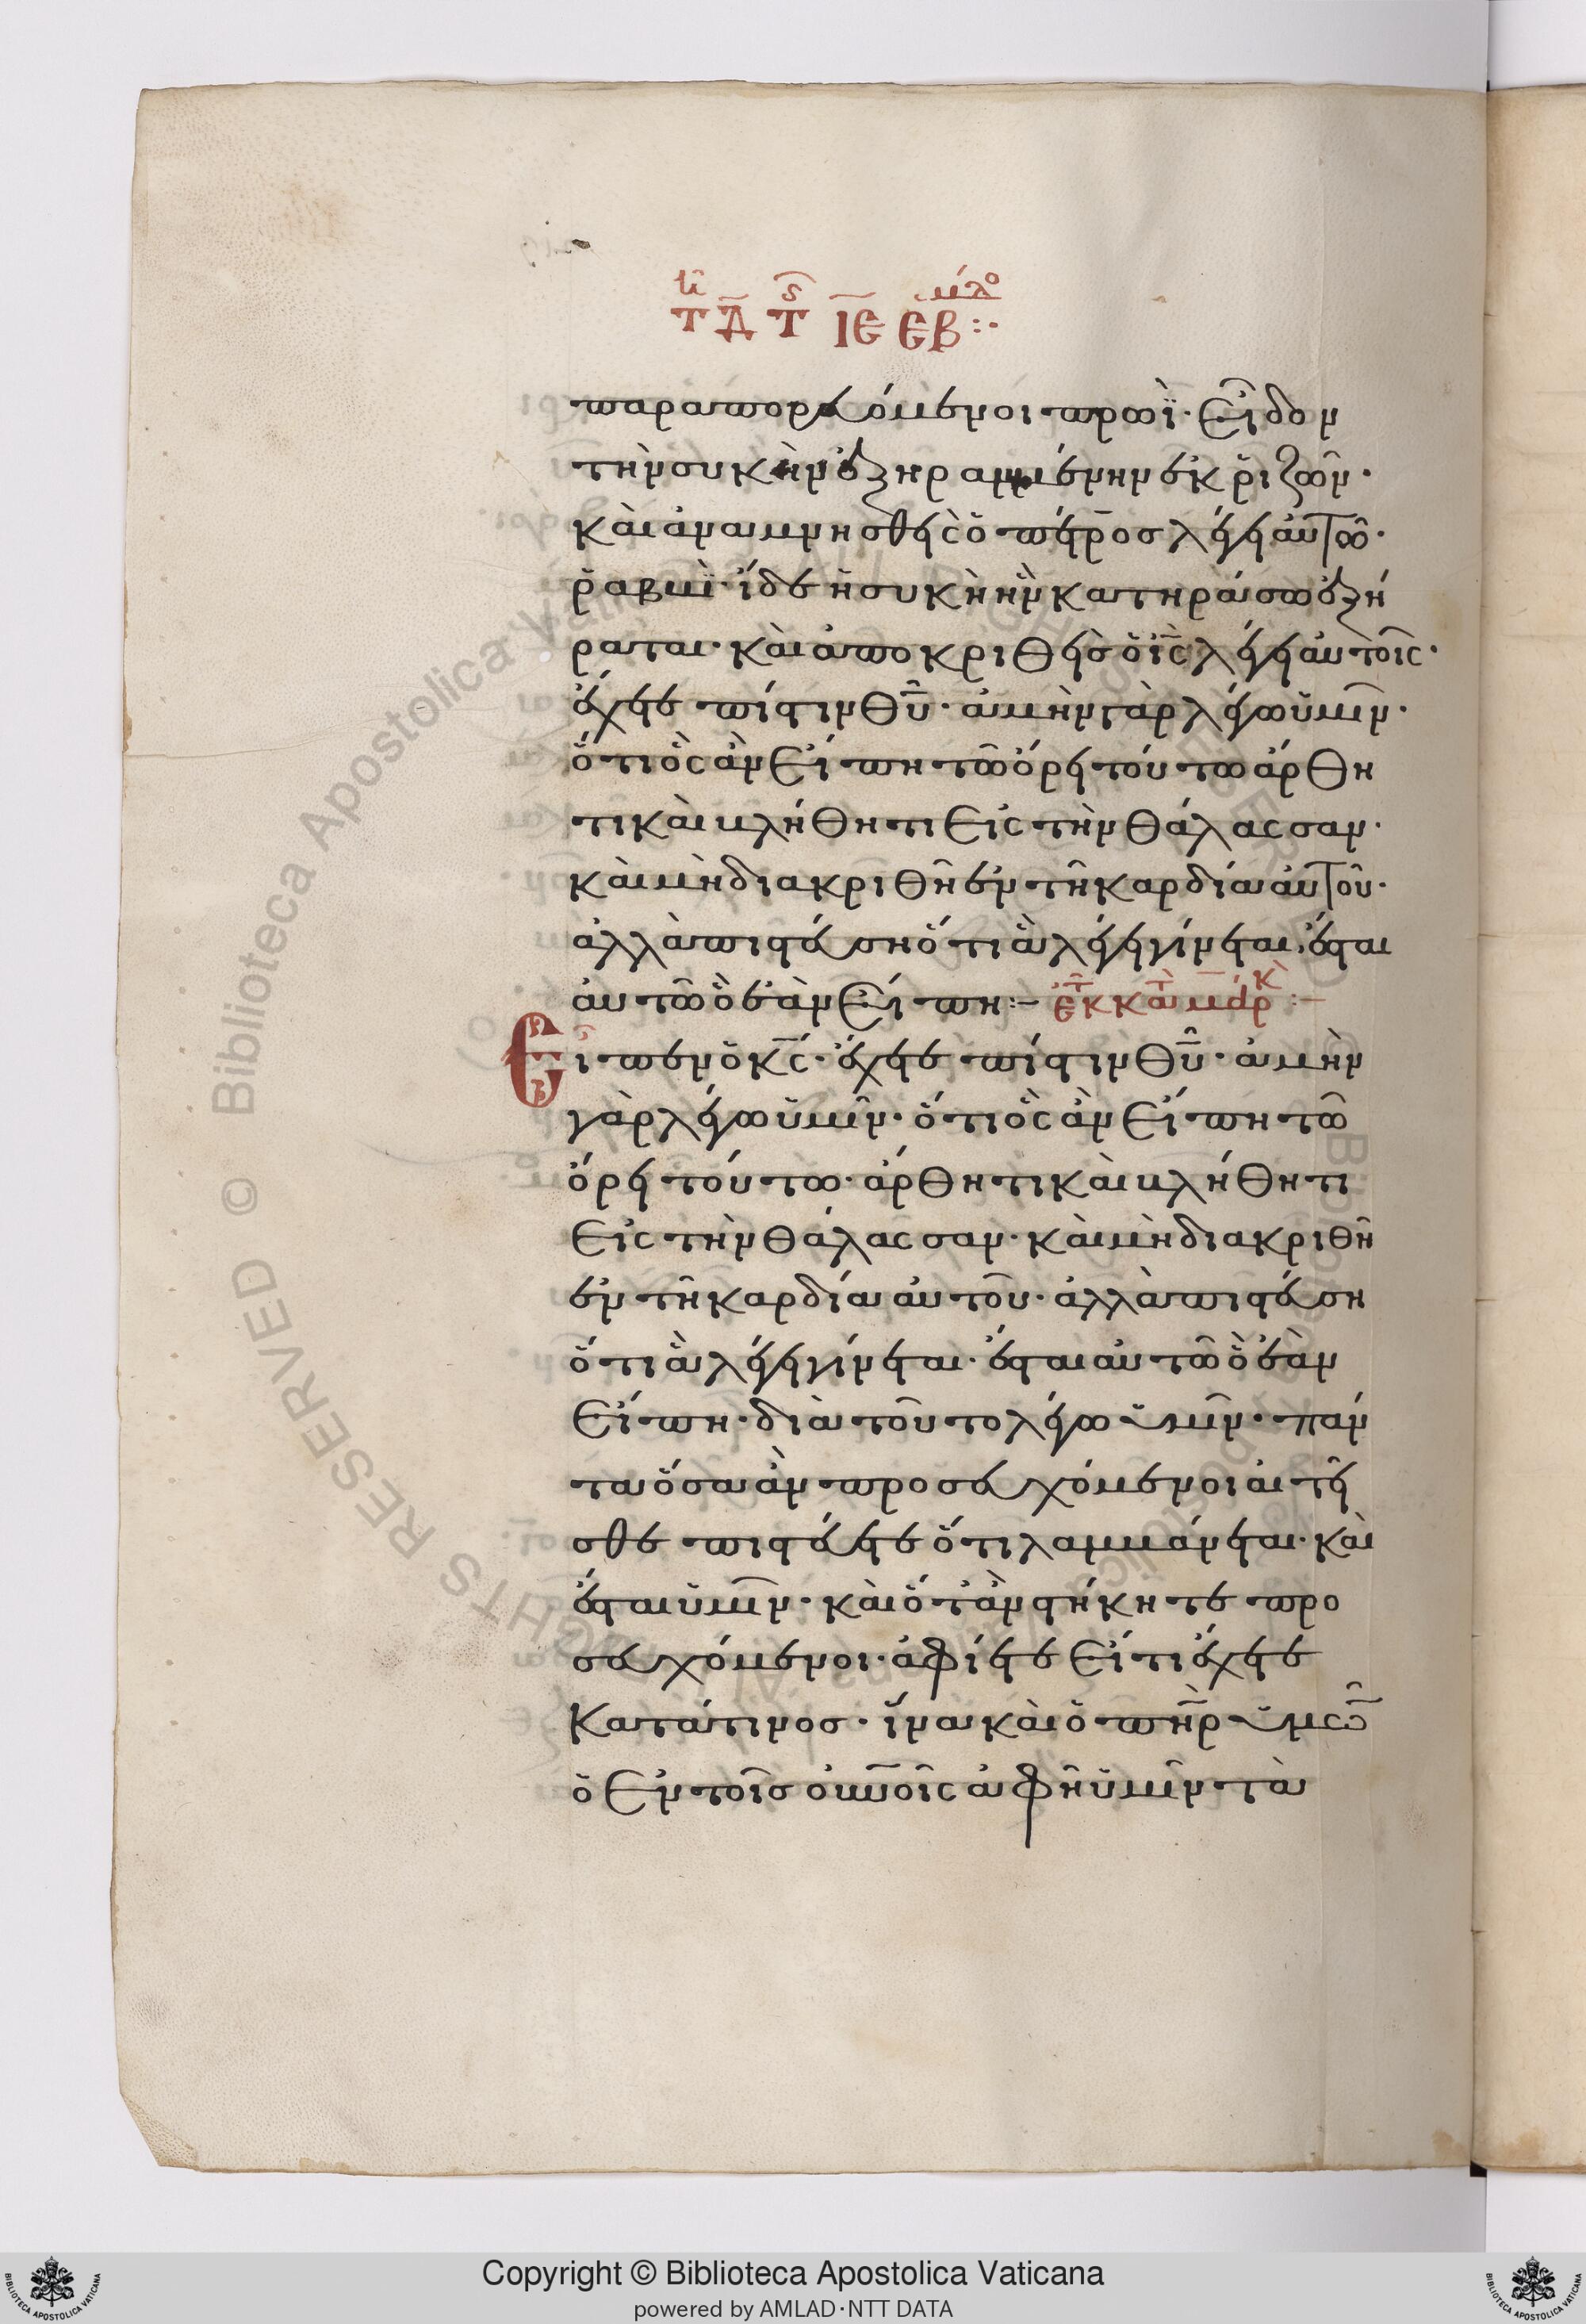 τῆ Δ τῆς ΙΕ ἑβδομ
παραπορευόμενοι πρωῒ· εἶδον
τὴν συκὴν ἐξηραμμένην ἐκ ῥιζῶν·
καὶ ἀναμνησθεὶς ὁ πέτρος λέγει αὐτῶ·
ῥαββὶ· ἴδε ἡ συκὴ ἣν κατηράσω ἐξή
ραται· καὶ ἀποκριθεὶς ὁ ις λέγει αὐτοῖς·
ἔχετε πίστιν θυ· ἀμὴν γὰρ λέγω ὑμῖν·
ὅτι ὃς ἂν εἴπη τῶ ὄρει τούτω ἄρθη
τι καὶ βλήθητι εἰς τὴν θάλασσαν·
καὶ μὴ διακριθῆ ἐν τῆ καρδία αὐτοῦ·
ἀλλὰ πιστεύση ὅτι ἃ λέγει γίνεται· ἔσται
αὐτῶ ὃ ἐὰν εἴπη :– ἐκ τ κατὰ μάρκ :–
Εἶπεν ὁ κς· ἔχετε πίστιν θυ· ἀμὴν
γὰρ λέγω ὑμῖν· ὅτι ὃς ἂν εἴπη τῶ
ὄρει τούτω· ἄρθητι καὶ βλήθητι
εἰς τὴν θάλασσαν· καὶ μὴ διακριθῆ
ἐν τῆ καρδία αὐτοῦ· ἀλλὰ πιστεύση
ὅτι ἃ λέγει γίνεται· ἔσται αὐτῶ ὃ ἐὰν
εἴπη· διὰ τοῦτο λέγω ὑμῖν· πάν
τα ὅσα ἂν προσευχόμενοι αἰτεῖ
σθε πιστεύετε ὅτι λαμβάνεται· καὶ
ἔσται ὑμῖν· καὶ ὅτ' ἂν στήκητε προ
σευχόμενοι· ἀφίετε εἴ τι ἔχετε
κατά τινος· ἵνα καὶ ὁ πηρ ὑμῶ
ὁ ἐν τοῖς οὐνοῖς ἀφῆ ὑμῖν τὰ
Copyright © Biblioteca Apostolica Vaticana
powered by AMLAD·NTT DATA